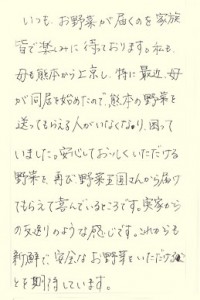 いつも、お野菜が届くのを家族
皆で楽しみに待っております。私も
母も熊本から上京し、特に最近、母
が同居を始めたので、熊本の野菜を
送ってもらえる人がいなくなり、困って
いました。安心しておいしくいただける
野菜を、再び野菜王国さんから届け
てもらえて喜んでいるところです。実家から
の仕送りのような感じです。これからも
新鮮で、安全なお野菜をいただけるこ
とを期待しています。